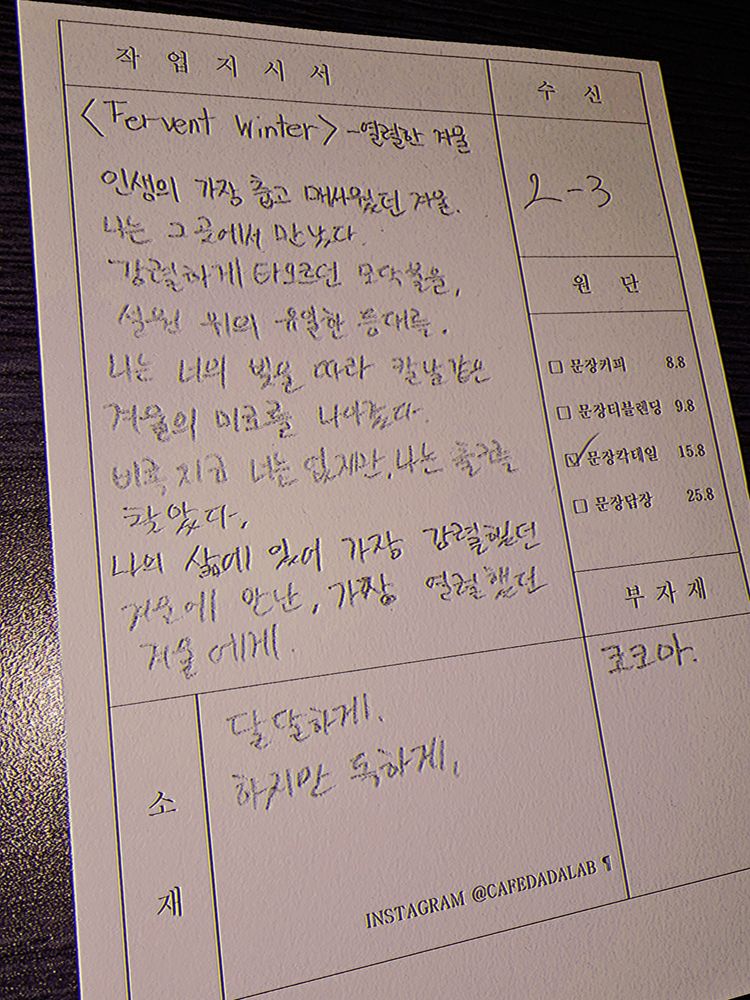 작업지시서
수신
<Fervent Winter> - 열렬한 겨울
인생의 가장 춥고 매서웠던 겨울.
나는 그곳에서 만났다.
강렬하게 타오르던 모닥불을,
설원 위의 유일한 등대를.
나는 너의 빛을 따라 칼날같은
겨울의 미로를 나아갔다.
비록 지금 너는 없지만, 나는 출구를
찾았다.
나의 삶에 있어 가장 강렬했던
겨울에 만난, 가장 열렬했던
겨울에게.
2-3
원단
문장커피 8.8
문장티블렌딩 9.8
문장칵테일 15.8
문장답장 25.8
부자재
코코아.
소재
달달하게.
하지만 독하게.
INSTAGRAM @CAFEDADALAB ¶